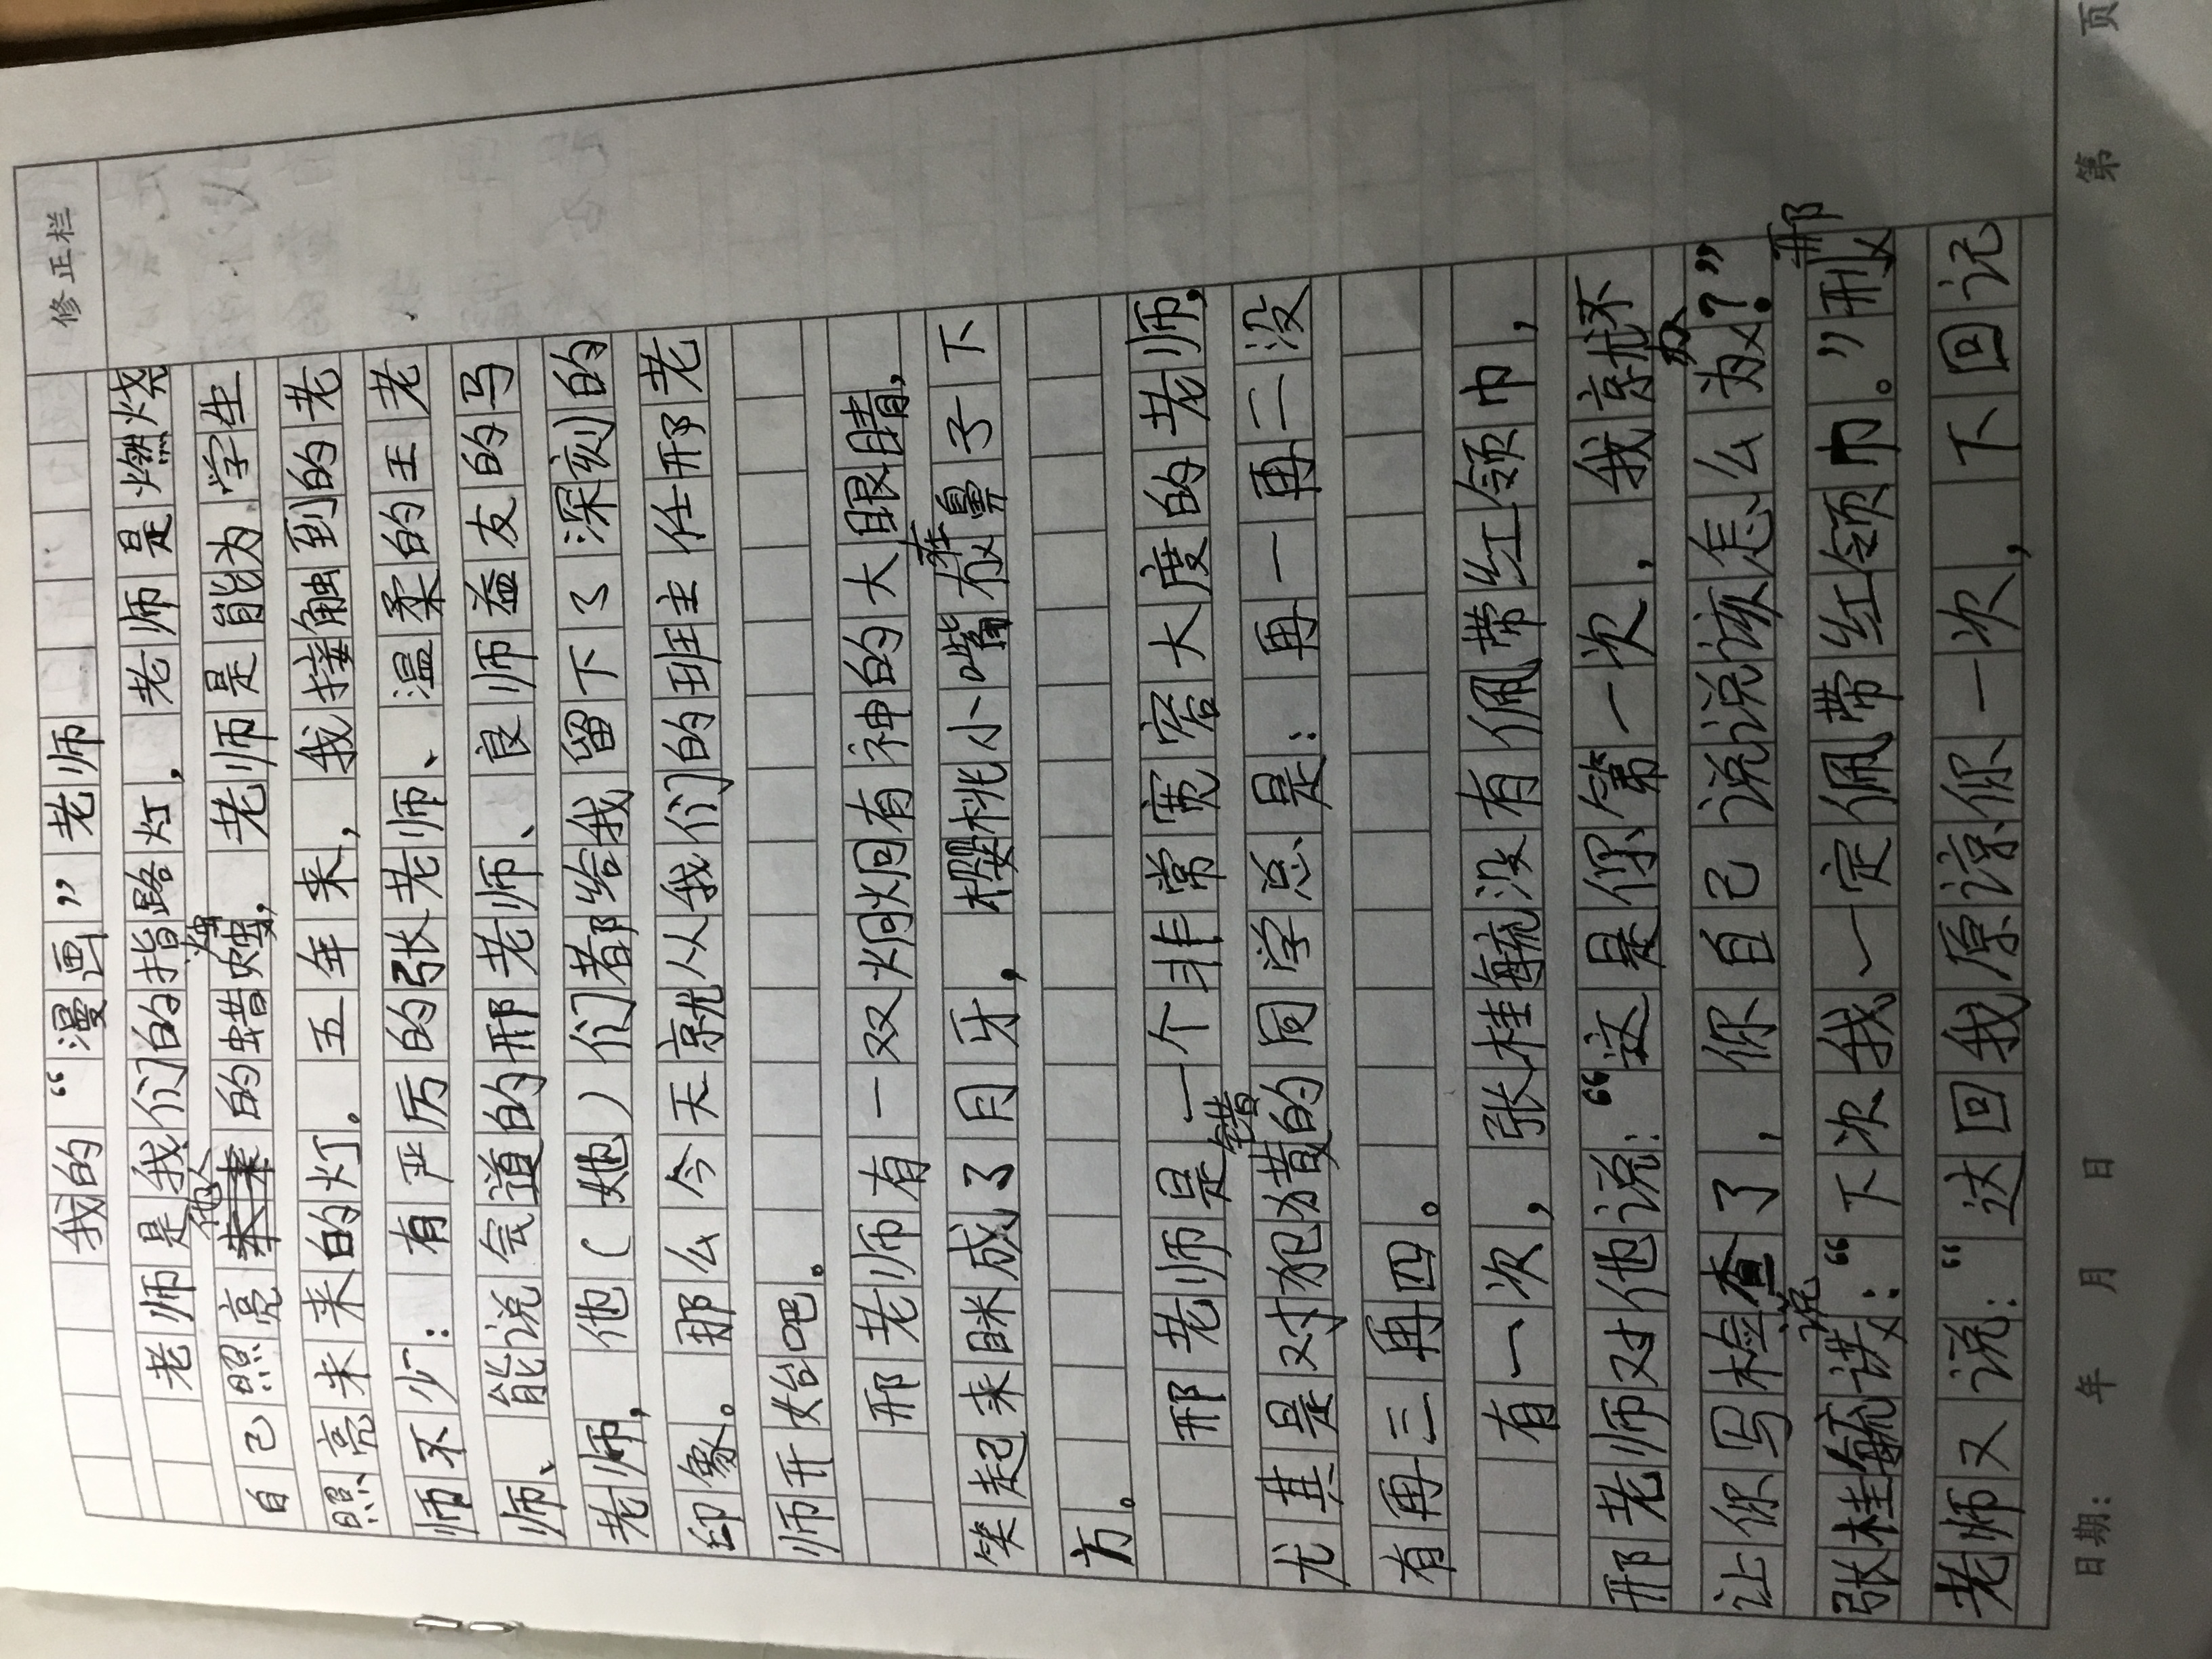 修正栏
我的“漫画”老师
老师是我们的指路灯，老师是燃烧
自己照亮他人的蜡烛，老师是能为学生
照亮未来的灯。五年来，我接触到的老
师不少：有严厉的张老师、温柔的王老
师、能说会道的邢老师、良师益友的马
老师，他（她）们都给我留下了深刻的
印象。那么今天就从我们的班主任邢老
师开始吧。
邢老师有一双炯炯有神的大眼睛，
笑起来眯成了月牙，樱桃小嘴在鼻子下
方。
邢老师是一个非常宽容大度的老师，
尤其是对犯错的同学总是：再一再二没
有再三再四。
有一次，张桂毓没有佩带红领巾，
邢老师对他说：“这是你第一次，我就不
让你写检查了，你自己说说该怎么办？”
张桂毓说：“下次我一定佩带红领巾。”邢
老师又说：“这回我原谅你一次，下回记
日期： 年 月 日 第 页